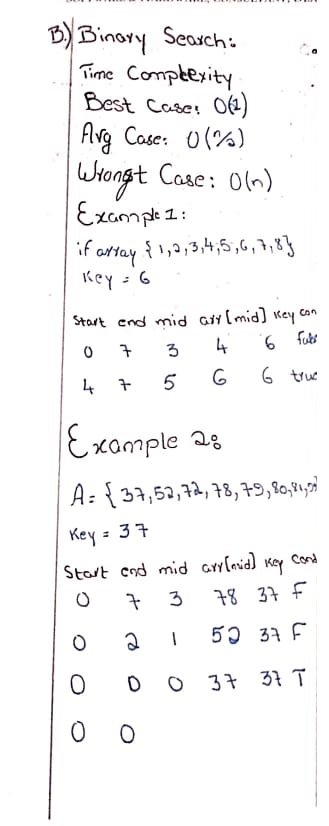 B.) Binary Search:
Time Comptexity
Best Case: O(1)
Avg Case: O(n/2)
Wrongt Case: O(n)
Example 1:
if array {1,2,3,4,5,6,7,8}
Key = 6
Start end mid arr[mid] Key con
0 7 3 4 6 fals
4 7 5 6 6 true
Example 2:
A = {37,52,72,78,79,80,81,
Key = 37
Start end mid arr[mid] Key Cond
0 7 3 78 37 F
0 2 1 52 37 F
0 0 0 37 37 T
0 0